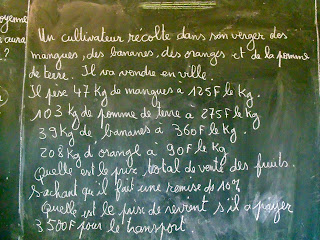 oyenne
aura
.?
Un cultivateur récolte dans son verger des
mangues, des bananes, des oranges et de la pomme
de terre. Il va vendre en ville.
Il pèse 47 Kg de mangues à 125F le Kg.
103 Kg de pomme de terre à 275F le Kg
39 Kg de bananes à 360F le Kg.
208 Kg d'orange à 90F le Kg
Quelle est le prix total de vente des fruits.
Sachant qu'il fait une remise de 10%
Quelle est le prix de revient s'il a payer
3500F pour le transport.